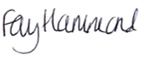 Fay Hammond